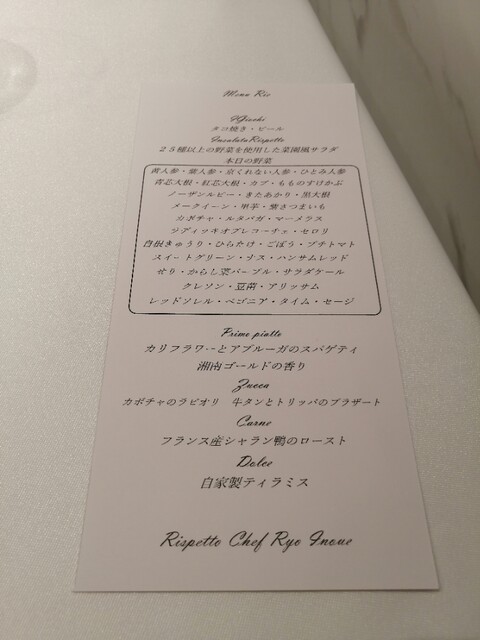 Menu Rio
タコ焼き・ビール
Insalata Rispetto
２５種以上の野菜を使用した菜園風サラダ
本日の野菜
黄人参・紫人参・京くれない人参・ひとみ人参
青芯大根・紅芯大根・カブ・もものすけかぶ
ノーザンルビー・きたあかり・黒大根
メークイーン・里芋・紫さつまいも
カボチャ・ルタバガ・マーメラス
ラディッキオプレコーチェ・セロリ
自根きゅうり・ひらたけ・ごぼう・プチトマト
スイートグリーン・ナス・ハンサムレッド
せり・からし菜パープル・サラダケール
クレソン・豆苗・アリッサム
レッドソレル・ベゴニア・タイム・セージ
Primo piatto
カリフラワーとアブルーガのスパゲティ
湘南ゴールドの香り
Zucca
カボチャのラビオリ 牛タンとトリッパのブラザート
Carne
フランス産シャラン鴨のロースト
Dolce
自家製ティラミス
Rispetto Chef Ryo Inoue